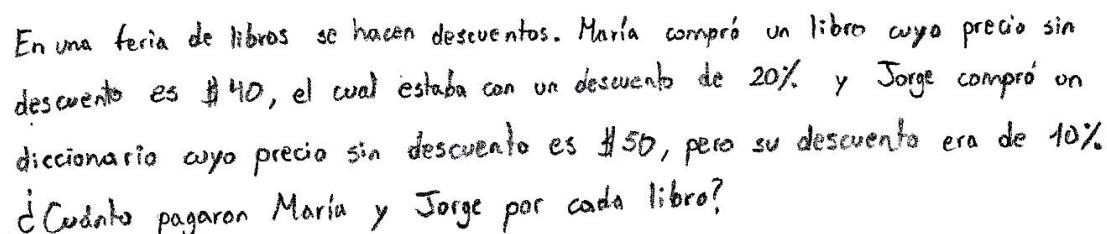 En una feria de libros se hacen descuentos. María compró un libro cuyo precio sin
descuento es $40, el cual estaba con un descuento de 20% y Jorge compró un
diccionario cuyo precio sin descuento es $50, pero su descuento era de 10%
¿Cuánto pagaron María y Jorge por cada libro?